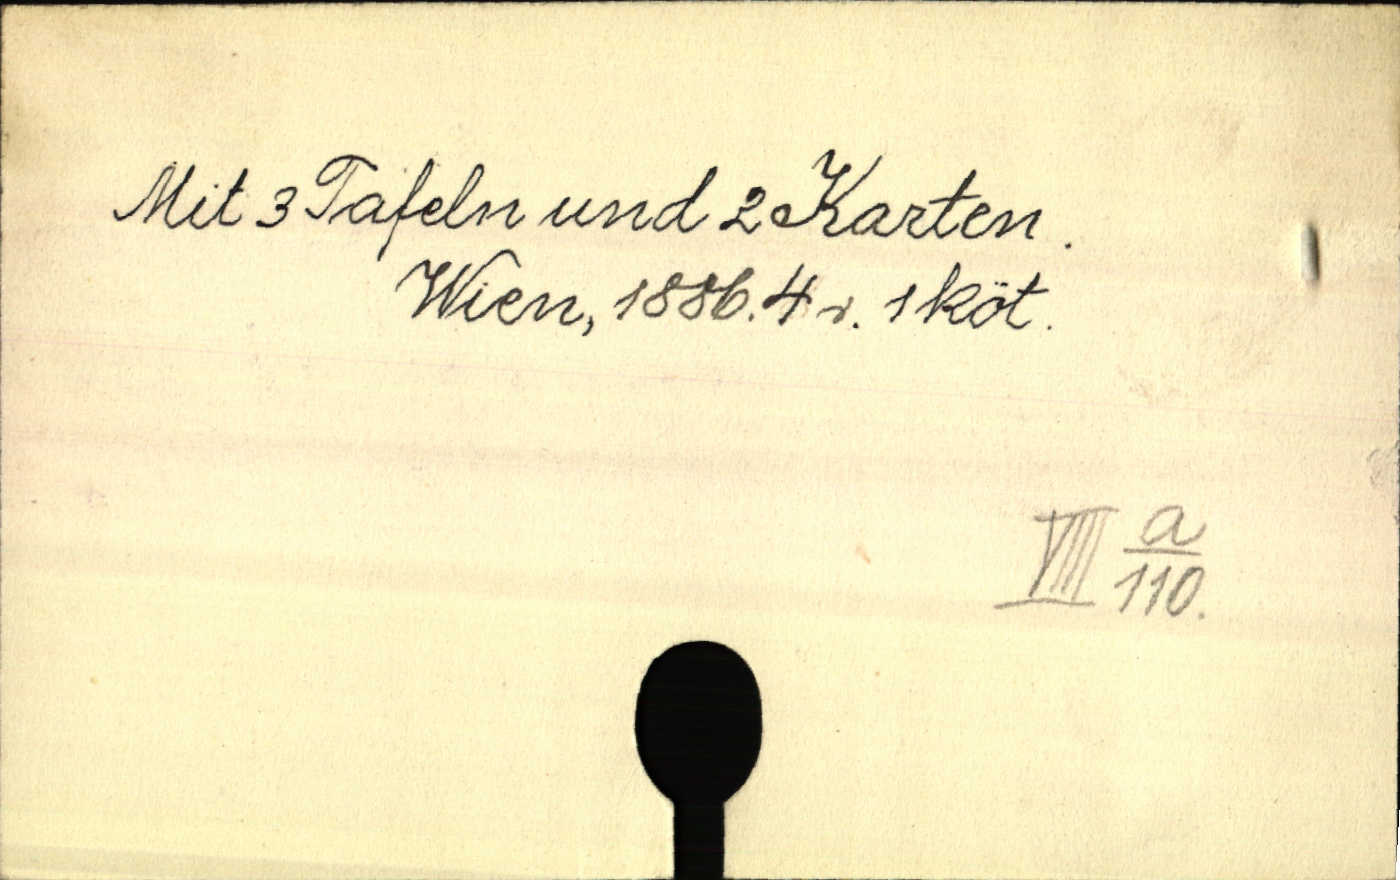 Mit 3 Tafeln und 2 Karten.
Wien, 1886. 4 r. 1 köt.
VIII a/110.